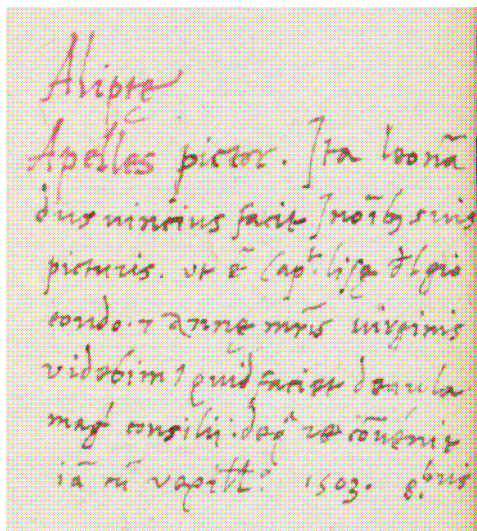 Aliptę
Apelles pictor. Ita Leonar
dus uincius facit In oībus suis
picturis. ut ē Caput lisę del gio
condo. et Anne matris uirginis
videbimus quid faciet de aula
magni consilii. de qua re conuenit
iā cū vexillo. 1503. 8.bris